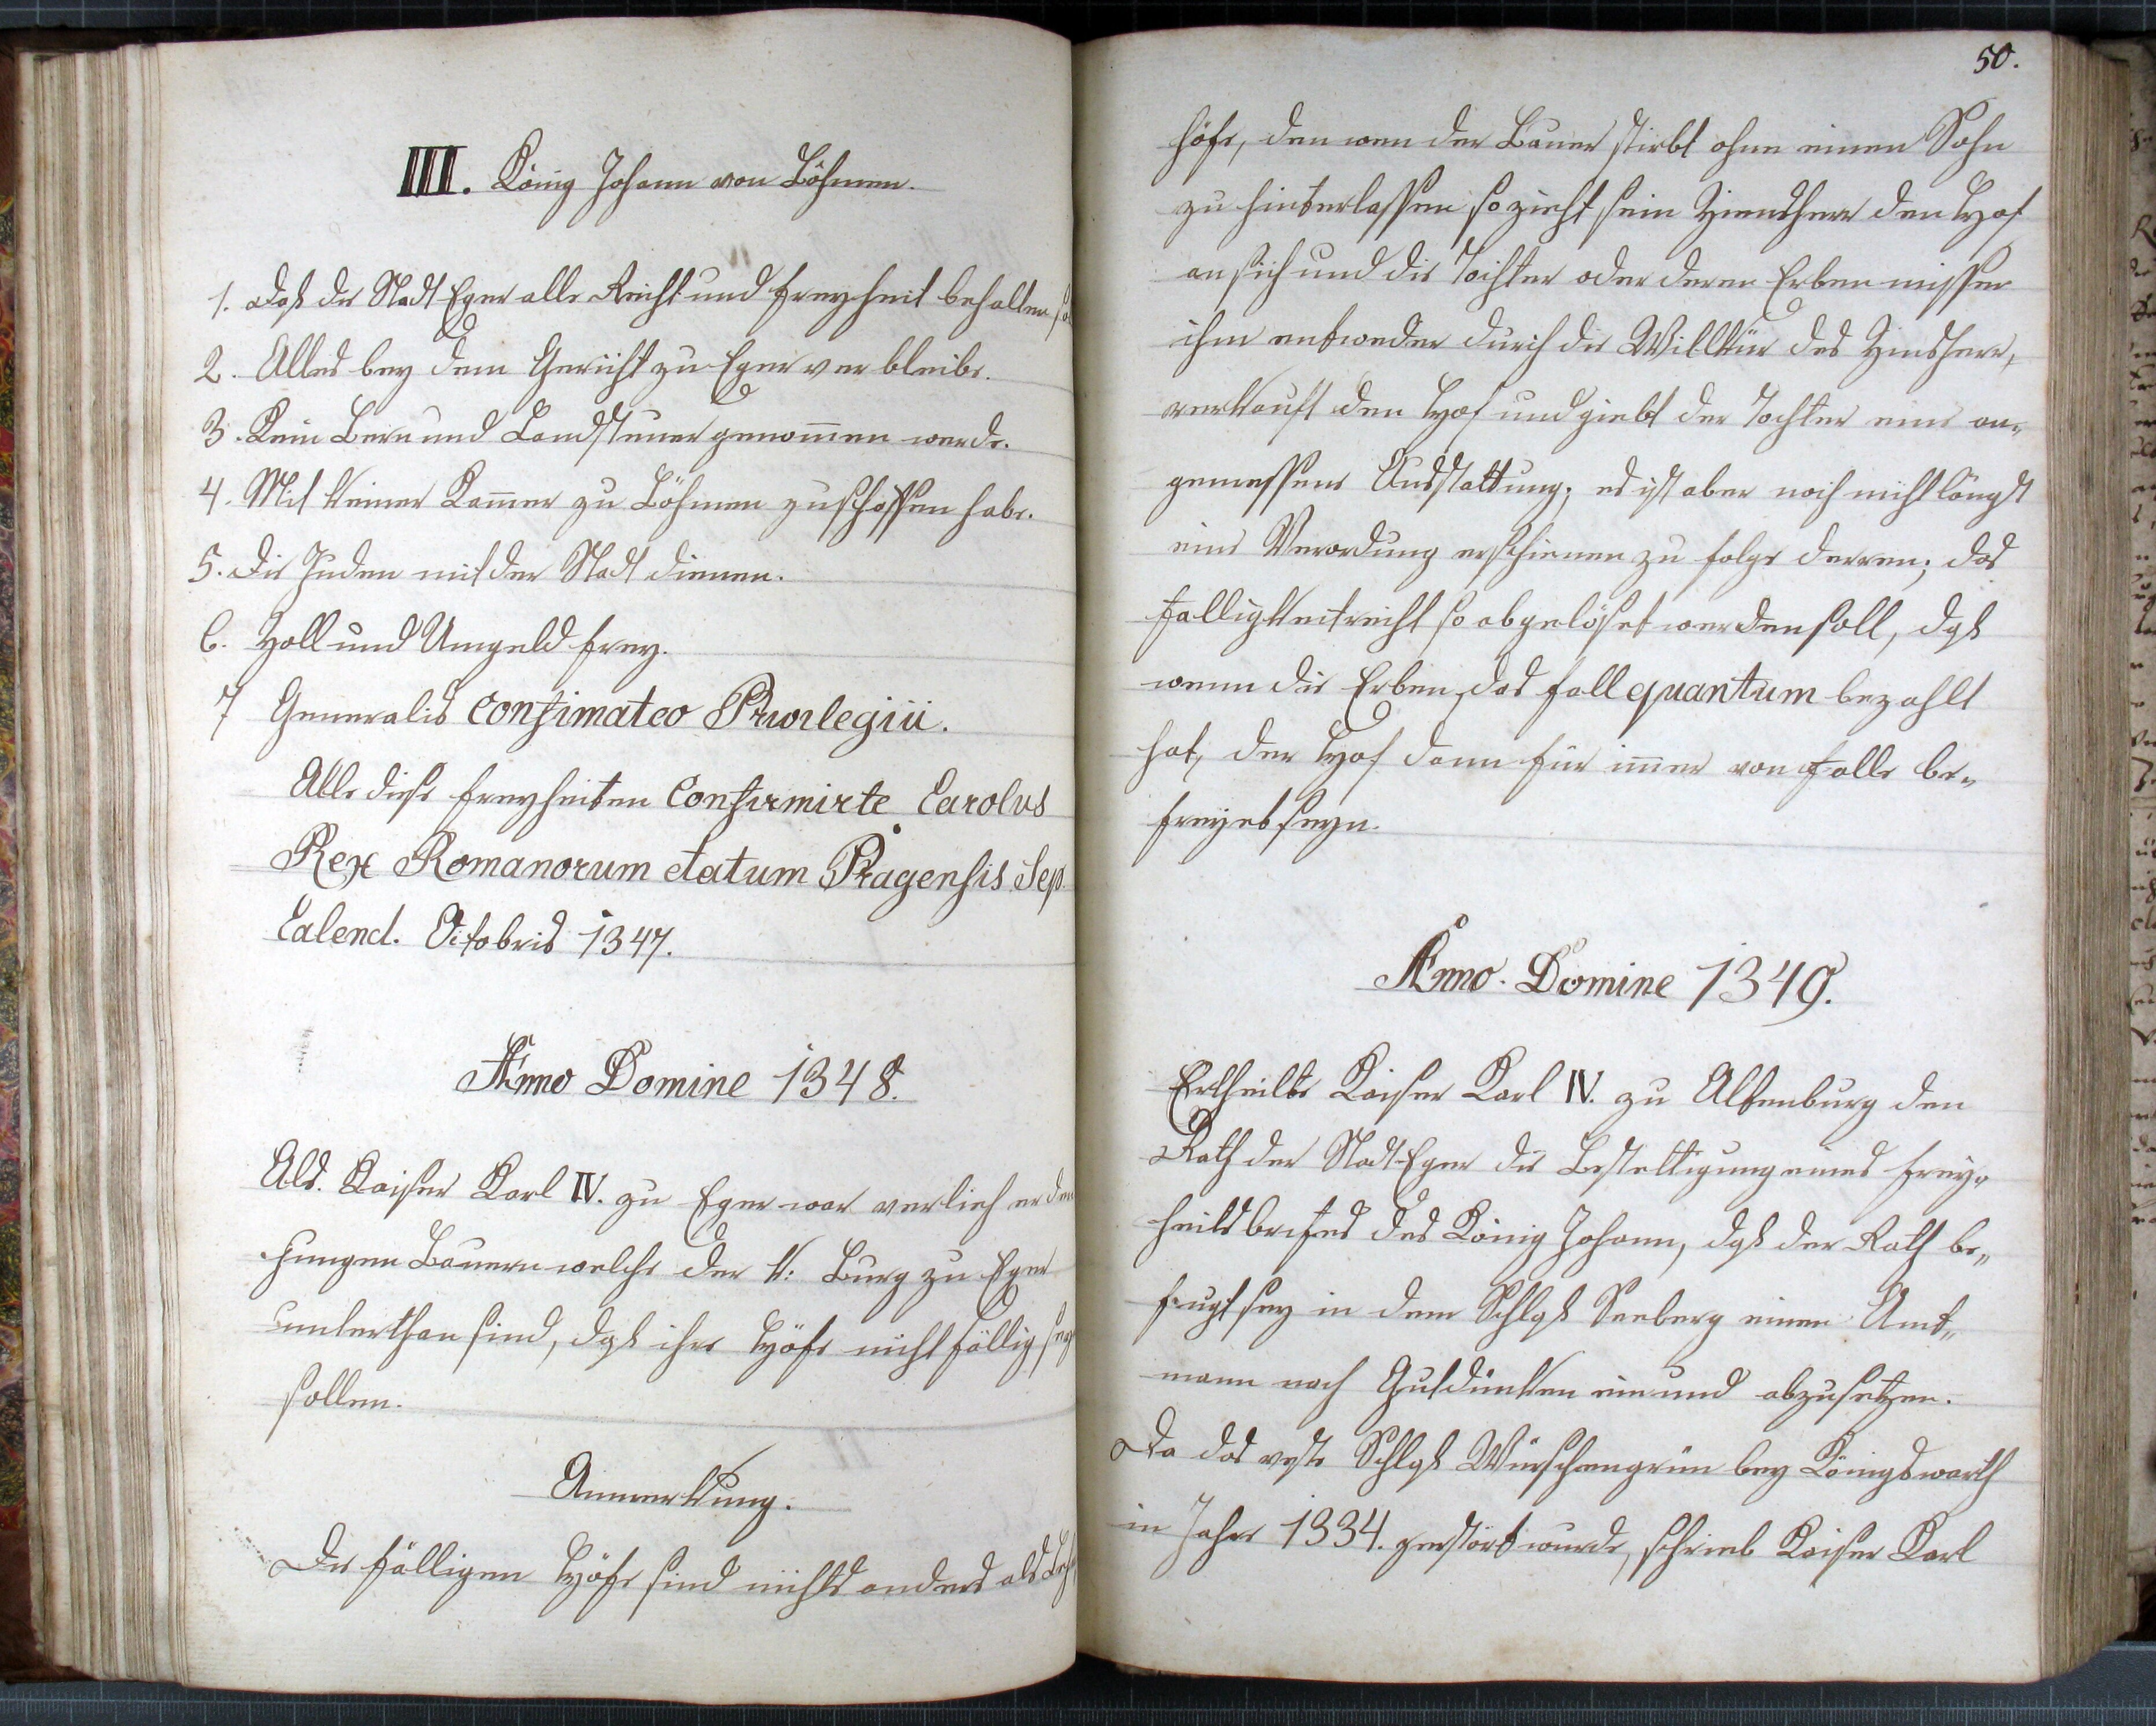 III. König Johann von Böhmen.
1. Daß die Stadt Eger alle Recht und Freyheit behalten
2. Alles bey dem Gericht zu Eger ver bleibe.
3. Kein Bern und Landsteuer genom̅en werde.
4. Mit keiner Kam̅er zu Böhmen zuschaffen habe.
5. Die Juden mit der Stadt dienen.
6. Zoll und Umgeld frey.
7 Generalis confimateo Privilegiii.
Alle diese Freyheiten Confirmirte Carolus
Rex Romanorum datum Pragensis Sep.
Calend. Octobris 1347.
Anno Domine 1348.
Als. Kaiser Karl IV. zu Eger war verlieh er den
jungen Bauern welche der k: Burg zu Eger
unterthan sind, daß ihre Höfe nicht fällig sey
sollen.
Anmerkung.
Die fälligen Höfe sind nichts anders als Leh
50.
höfe, den wen der Bauer stirbt ohne einen Sohn
zu hinterlassen so zieht sein Zinsherr den Hof
an sich und die Tochter oder deren Erben missen
ihm entweder durch die Willkür des Zinsherr,
verkauft den Hof und giebt der Tochter eine an„
gemessene Ausstattung; es ist aber noch nicht längst
eine Verordung erschienen zu folge derren; das
Falligkeitrecht so abgelöset werden soll, daß
wenn die Erben das Fallquantum bezahlt
hat, der Hof dann für im̅er von Falle be„
freyet seyn.
Anno. Domine 1349.
Ertheilte Kaiser Karl IV. zu Altenburg den
Rath der Stadt Eger die Bestettigung eines Frey„
heitsbrifes des König Johann, daß der Rath be„
fugt sey in dem Schloß Seeberg einen Amt„
mann nach Gutdünken ein und abzusetzen.
Da das veste Schloß Würschengrün bey Königswarth
in Jahre 1334. zerstört wurde, schrieb Kaiser Karl